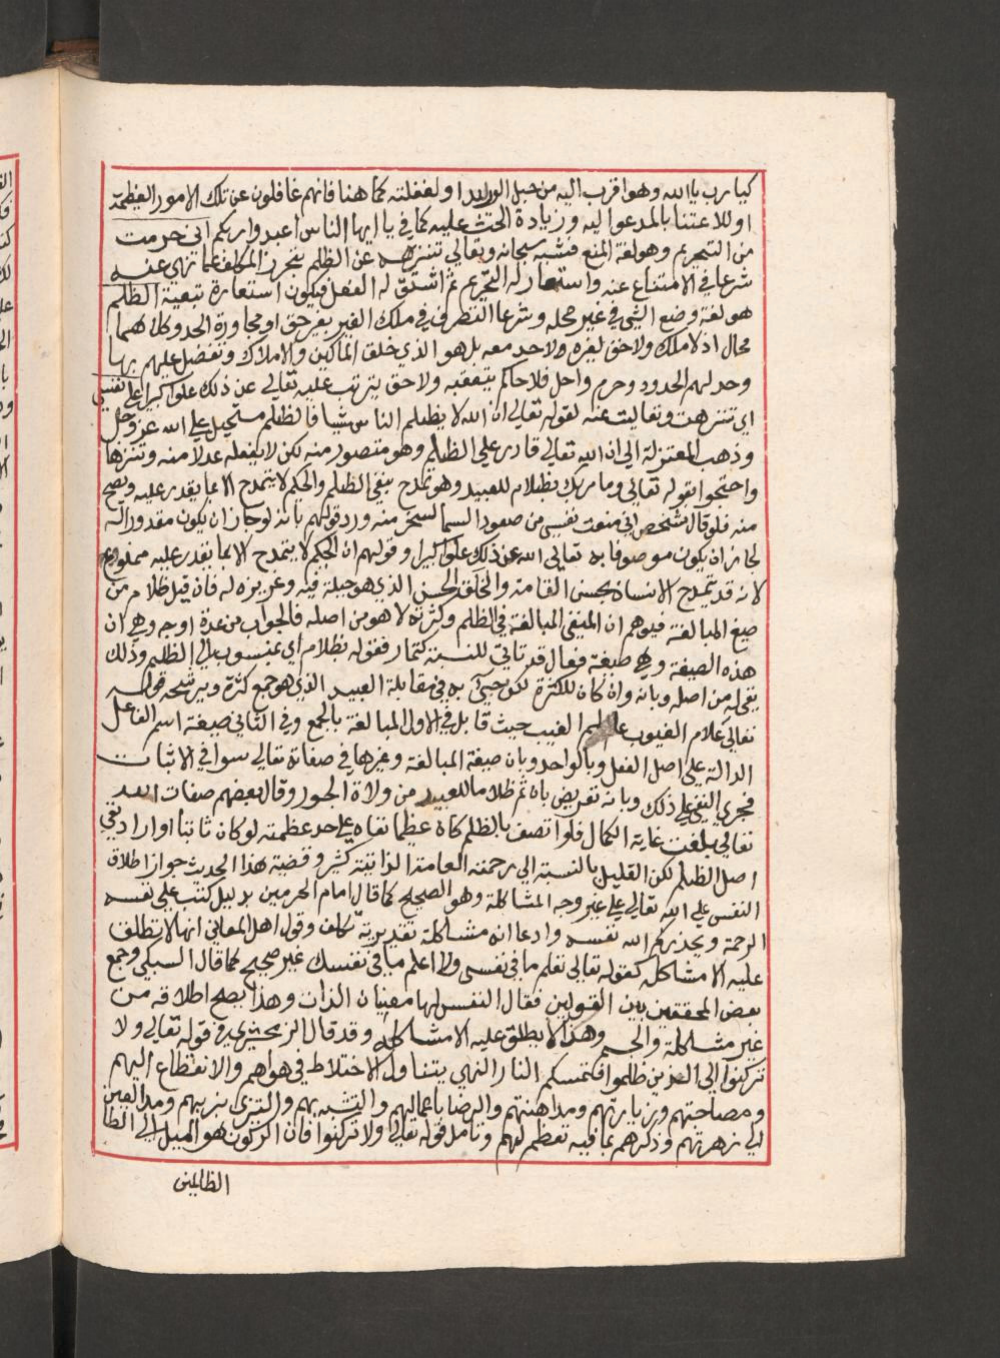 كيارب يا الله وهو اقرب اليه من حبل الوريد او لغفلته كما هنا فانهم غافلون عن تلك الامور العظيمة
او للاعتنا بالمدعو اليه وزيادة الحث عليه كما في يا ايها الناس اعبدوا ربكم اني حرمت
من التحريم وهو لغة المنع فشبه سبحانه وتعالى تنزهه عن الظلم بتحرز المكلف عما نهي عنه
شرعا في الامتناع عنه واستعار له التحريم ثم اشتق له الفعل فيكون استعارة تبعية الظلم
هو لغة وضع الشي في غير محله وشرعا التصرف في ملك الغير بغير حق او مجاورة الحد وكلاهما
محال اذ لا ملك ولا حق لغيره ولا حد معه بل هو الذي خلق المالكين والاملاك وتفضل عليهم بها
وحد لهم الحدود وحرم واحل فلا حاكم يتعقبه ولا حق يترتب عليه تعالى عن ذلك علوا كبيرا على نفسي
اي تنزهت وتعاليت عنه لقوله تعالى ان الله لا يظلم الناس شيا فالظلم مستحيل على الله عز وجل
وذهب المعتزلة الى ان الله تعالى قادر على الظلم وهو متصور منه لكن لا يفعله عدلا منه وتنزها
واحتجوا بقوله تعالى وما ربك بظلام للعبيد وهو تمدح بنفي الظلم والحكيم لا يتمدح الا بما يقدر عليه ويصح
منه فلو قال شخص اني منعت نفسي من صعود السما لسخر منه ورد قولهم بانه لو جاز ان يكون مقدورا له
لجاز ان يكون موصوفا به تعالى الله عن ذلك علوا كبيرا وقولهم ان الحكيم لا يتمدح الا بما يقدر عليه ممنوع
لانه قد يتمدح الانسان بحسن القامة والخلق الحسن الذي هو جبلة فيه وغريزة له فان قيل ظلام من
صيغ المبالغة فيوهم ان المنفي المبالغة في الظلم وكثرته لا هو من اصله فالجواب من عدة اوجه وهي ان
هذه الصيغة وهي صيغة فعال قد تاتي للنسبة كتمار فقوله بظلام اي بمنسوب الى الظلم وذلك
نفي له من اصله وبانه وان كان للكثرة لكن جيئ به في مقابلة العبيد الذي هو جمع كثرة ويرشحه قوله
تعالى علام الغيوب عالم الغيب حيث قابل في الاول المبالغة بالجمع وفي الثاني صيغة اسم الفاعل
الدالة على اصل الفعل وبالواحد وبان صيغة المبالغة وغيرها في صفاته تعالى سوا في الاثبات
فجري النفي على ذلك وبانه تعريض بان ثم ظلاما للعبيد من ولاة الجور وقال بعضهم صفات الله
تعالى بلغت غاية الكمال فلو اتصف بالظلم كان عظيما نفاه على حد عظمته لو كان ثابتا او اراد نفي
اصل الظلم لكن القليل بالنسبة الى رحمته العامة الذاتية كثير وقضية هذا الحديث جواز اطلاق
النفس على الله تعالى على غير وجه المشاكلة وهو الصحيح كما قال امام الحرمين بدليل كتب على نفسه
الرحمة ويحذركم الله نفسه وادعا انه مشاكلة تقديرية تكلف وقول اهل المعاني انها لا تطلق
عليه الا مشاكلة كقوله تعالى تعلم ما في نفسي ولا اعلم ما في نفسك غير صحيح كما قال السبكي وجمع
بعض المحققين بين القولين فقال النفس لها معنيان الذات وهذا يصح اطلاقه من
غير مشاكلة والجسم وهذا لا يطلق عليه الا مشاكلة وقد قال الزمخشري في قوله تعالى ولا
تركنوا الى الذين ظلموا فتمسكم النار النهي يتناول الاختلاط في هواهم والانقطاع اليهم
ومصاحبتهم وزيارتهم ومداهنتهم والرضا باعمالهم والتشبه بهم والتزي بزيهم ومد العين
الى زهرتهم وذكرهم بما فيه تعظيم لهم وتامل قوله تعالى ولا تركنوا فان الركون هو الميل الى الظا
الظالمين